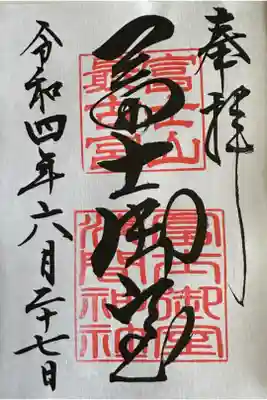 奉拝
富士山
最古宮
冨士御室
冨士御室
浅間神社
令和四年六月二十七日